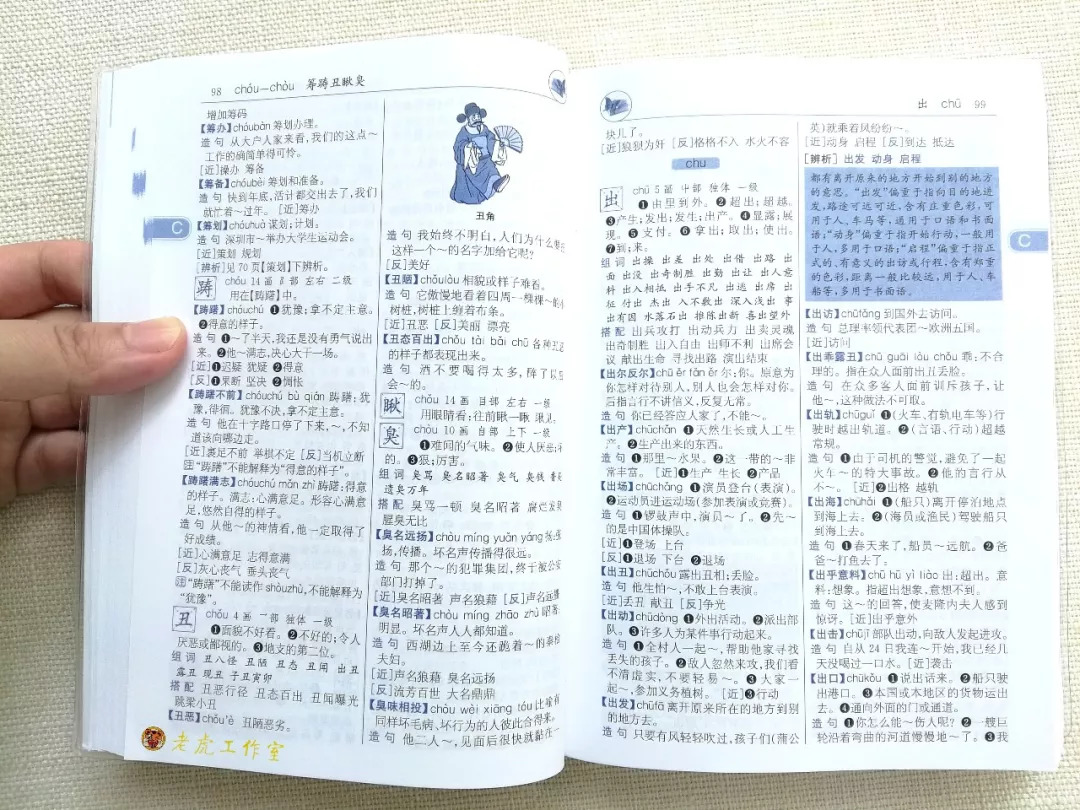 98 chóu—chòu 筹踌丑瞅臭
增加筹码
【筹办】chóubàn 筹划办理。
造句 从大户人家来看,我们的这点～
工作的确简单得可怜。
[近]操办 筹备
【筹备】chóubèi 筹划和准备。
造句 快到年底,活计都交出去了,我们
就忙着～过年。 [近]筹办
【筹划】chóuhuà 谋划;计划。
造句 深圳市～举办大学生运动会。
[近]策划 规划
[辨析]见70页【策划】下辨析。
C
踌 chóu 14画 部 左右 二级
用在【踌躇】中。
【踌躇】chóuchú ❶犹豫;拿不定主意。
❷得意的样子。
造句 ❶～了半天,我还是没有勇气说出
来。❷他～满志,决心大干一场。
[近]❶迟疑 犹疑 ❷得意
[反]❶果断 坚决 ❷惆怅
【踌躇不前】chóuchú bù qián 踌躇:犹
豫,徘徊。犹豫不决,拿不定主意。
造句 他在十字路口停了下来,～,不知
道该向哪边走。
[近]裹足不前 举棋不定 [反]当机立断
“踌躇”不能解释为“得意的样子”。
【踌躇满志】chóuchú mǎn zhì 踌躇:得意
的样子。满志:心满意足。形容心满意
足,悠然自得的样子。
造句 从他～的神情看,他一定取得了
好成绩。
[近]心满意足 志得意满
[反]灰心丧气 垂头丧气
“踌躇”不能读作 shòuzhù,不能解释为
“犹豫”。
丑 chǒu 4画 一部 独体 一级
❶面貌不好看。❷不好的;令人
厌恶或鄙视的。❸地支的第二位。
组词 丑八怪 丑陋 丑态 丑闻 出丑
露丑 现丑 子丑寅卯
搭配 丑恶行径 丑态百出 丑闻曝光
跳梁小丑
【丑恶】chǒu'è 丑陋恶劣。
老虎工作室
丑角
造句 我始终不明白,人们为什么
这样一个～的名字加给它呢?
[反]美好
【丑陋】chǒulòu 相貌或样子难看。
造句 它傲慢地看着四周一棵棵一般
树桩,树桩上缠着布条。
[近]丑恶 [反]美丽 漂亮
【丑态百出】chǒu tài bǎi chū 各种
的样子都表现出来。
造句 酒不要喝得太多,
会～的。
瞅 chǒu 14画 目部 左右 一级
用眼睛看:往前瞅一瞅
臭 chòu 10画 自部 上下 一级
❶难闻的气味。❷使人厌恶
的。❸狠;厉害。
组词 臭骂 臭名昭著 臭气 臭钱
遗臭万年
搭配 臭骂一顿 臭名昭著 腐烂发臭
腥臭无比
【臭名远扬】chòu míng yuǎn yáng
扬,传播。坏名声传播得很远。
造句 那个～的犯罪集团,终于被公安
部门打掉了。
[近]臭名昭著 声名狼藉 [反]声名远播
【臭名昭著】chòu míng zhāo zhù 昭著:
明显。坏名声人人都知道。
造句 西湖边上至今还跪着～的秦桧
夫妇。
[近]声名狼藉 臭名远扬
[反]流芳百世 大名鼎鼎
【臭味相投】chòu wèi xiāng tóu 比喻有
同样坏毛病、坏行为的人彼此合得来。
造句 他二人～,见面后很快就黏在一
出 chū 99
块儿了。
[近]狼狈为奸 [反]格格不入 水火不容
chu
出 chū 5画 部 独体 一级
❶由里到外。❷超出;超越。
❸产生;发出;发生;出产。❹显露;展
现。❺支付。❻拿出;取出;使出。
❼到;来。
组词 出操 出差 出处 出借 出路 出
面 出没 出奇制胜 出勤 出让 出人意
料 出人相抵 出手不凡 出逃 出席 出
征 付出 杰出 入不敷出 深入浅出 事
出有因 水落石出 推陈出新 喜出望外
搭配 出兵攻打 出动兵力 出卖灵魂
出奇制胜 出入自由 出师不利 出席会
议 献出生命 寻找出路 演出结束
【出尔反尔】chū ěr fǎn ěr 尔:你。原意为
你怎样对待别人,别人也会怎样对你。
后指言行不讲信义,反复无常。
造句 你已经答应人家了,不能～。
【出产】chūchǎn ❶天然生长或人工生
产。❷生产出来的东西。
造句 ❶那里～水果。❷这一带的～非
常丰富。 [近]❶生产 生长 ❷产品
【出场】chūchǎng ❶演员登台(表演)。
❷运动员进运动场(参加表演或竞赛)。
造句 ❶锣鼓声中,演员～了。❷先～
的是中国体操队。
[近]❶登场 上台
[反]❶退场 下台 ❷退场
【出丑】chūchǒu 露出丑相;丢脸。
造句 他生怕～,不敢上台表演。
[近]丢丑 献丑 [反]争光
【出动】chūdòng ❶外出活动。❷派出部
队。❸许多人为某件事行动起来。
造句 ❶全村人一起～,帮助他家寻找
丢失的孩子。❷敌人忽然来攻,我们看
不清虚实,不要轻易～。❸大家一
起～,参加义务植树。 [近]❸行动
【出发】chūfā 离开原来所在的地方到别
的地方去。
造句 只要有风轻轻吹过,孩子们(蒲公
英)就乘着风纷纷～。
[近]动身 启程 [反]到达 抵达
[辨析] 出发 动身 启程
都有离开原来的地方开始到别的地方
的意思。“出发”偏重于指向目的地进
发,路途可远可近,含有庄重色彩,可
用于人、车马等,通用于口语和书面
语;“动身”偏重于指开始行动,一般用
于人,多用于口语;“启程”偏重于指正
式的、有意义的出访或行程,含有郑重
的色彩,距离一般比较远,用于人、车
船等,多用于书面语。
C
【出访】chūfǎng 到国外去访问。
造句 总理率领代表团～欧洲五国。
[近]访问
【出乖露丑】chū guāi lòu chǒu 乖:不合
理的。指在众人面前出丑丢脸。
造句 在众多客人面前训斥孩子,让
他～,这种做法不可取。
【出轨】chūguǐ ❶(火车、有轨电车等)行
驶时越出轨道。❷(言语、行动)超越
常规。
造句 ❶由于司机的警觉,避免了一起
火车～的特大事故。❷他的言行从
不～。 [近]❷出格 越轨
【出海】chūhǎi ❶(船只)离开停泊地点
到海上去。❷(海员或渔民)驾驶船只
到海上去。
造句 ❶春天来了,船员～远航。❷爸
爸～打鱼去了。
【出乎意料】chū hū yì liào 出:超出。意
料:想象。指超出想象,意想不到。
造句 这～的回答,使麦隆内夫人感到
惊讶。 [近]出乎意外
【出击】chūjī 部队出动,向敌人发起进攻。
造句 自从24日我连～开始,我已经几
天没喝过一口水。 [近]袭击
【出口】chūkǒu ❶说出话来。❷船只驶
出港口。❸本国或本地区的货物运出
去。❹通向外面的门或通道。
造句 ❶你怎么能～伤人呢? ❷一艘巨
轮沿着弯曲的河道慢慢地～了。❸我